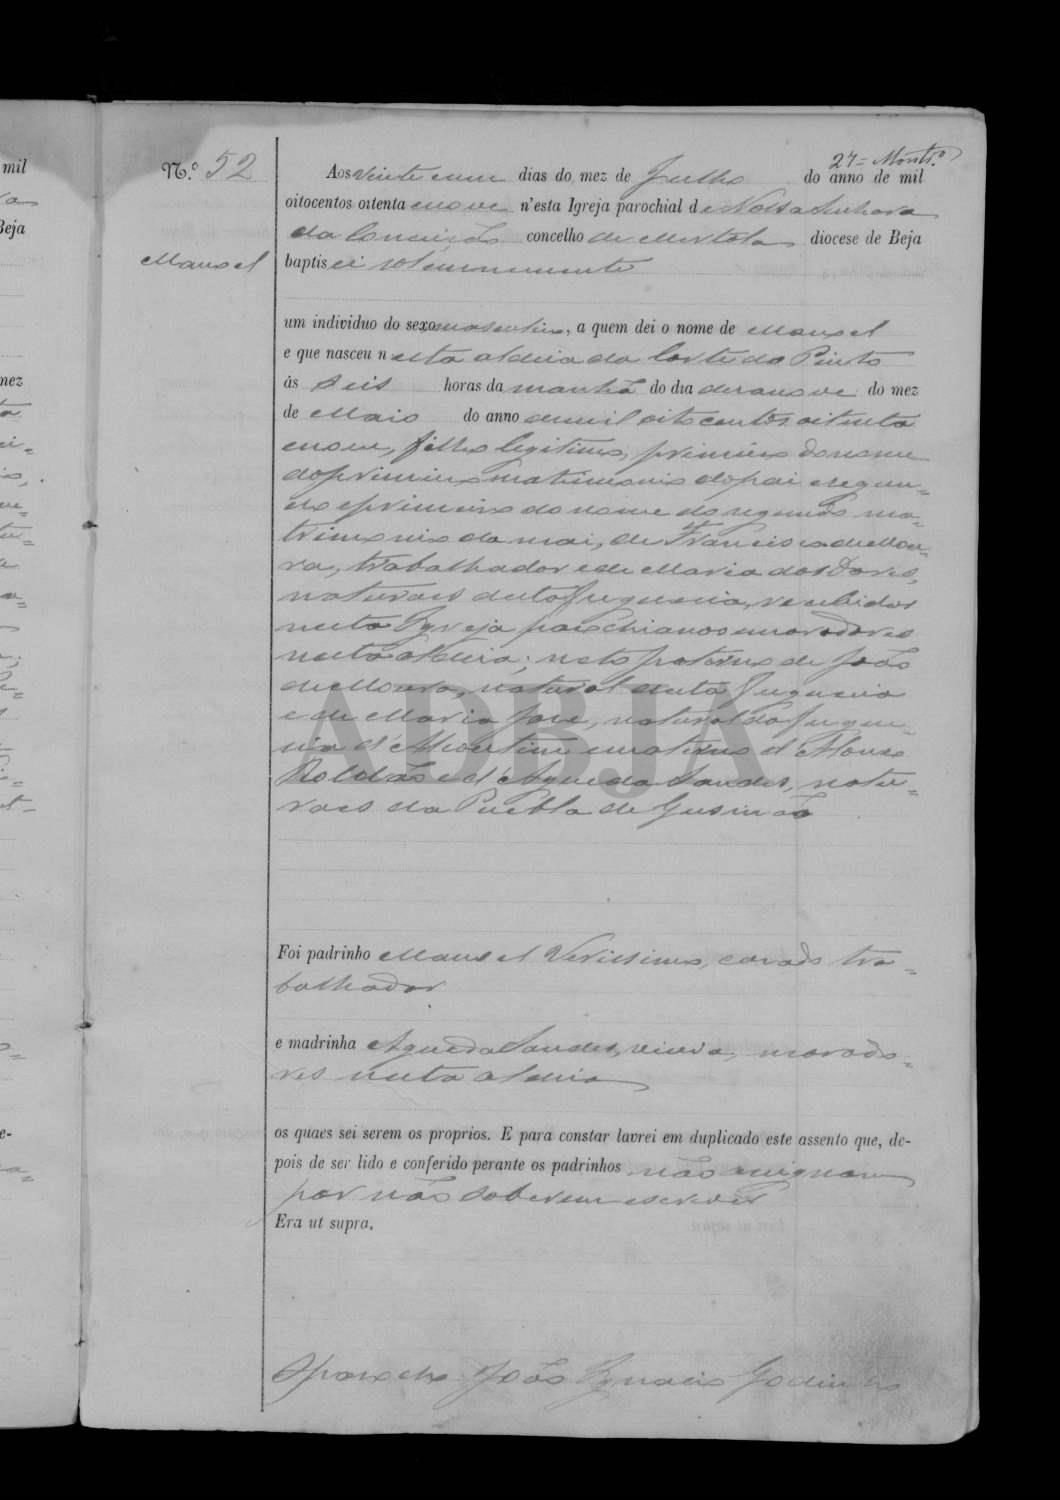 27= Montr.º
N.º 52
Aos vinte e um dias do mez de Julho do anno de mil
oitocentos oitenta e nove n'esta Igreja parochial de Nossa Senhora
da Conceição concelho de Mertola diocese de Beja
Manoel
baptisei solemnemente
um individuo do sexo masculino, a quem dei o nome de Manoel
e que nasceu nesta aldeia da Corte do Pinto
ás seis horas da manhã do dia desanove do mez
de Maio do anno de mil oito centos oitenta
e nove, filho legitimo, primeiro do nome
do primeiro matrimonio do pai e segun=
do e primeiro do nome do segundo ma=
trimonio da mai, de Francisco de Mou=
ra, trabalhador e de Maria das Dores,
naturaes desta freguesia, recebidos
nesta Igreja parochianos e moradores
nesta aldeia; neto paterno de João
de Moura, natural desta freguesia
e de Maria José, natural da fregue=
sia d'Alcoutim e materno d'Afonso
Roldão e d'Agueda Sandes, natu=
raes da Puebla de Gusmão
ADBJA
Foi padrinho Manoel Verissimo, casado tra=
balhador
e madrinha Agueda Sandes, viuva, morado=
res nesta aldeia
os quaes sei serem os proprios. E para constar lavrei em duplicado este assento que, de-
pois de ser lido e conferido perante os padrinhos não assignam
por não saberem escrever
Era ut supra.
O parocho João Ignacio Godinho